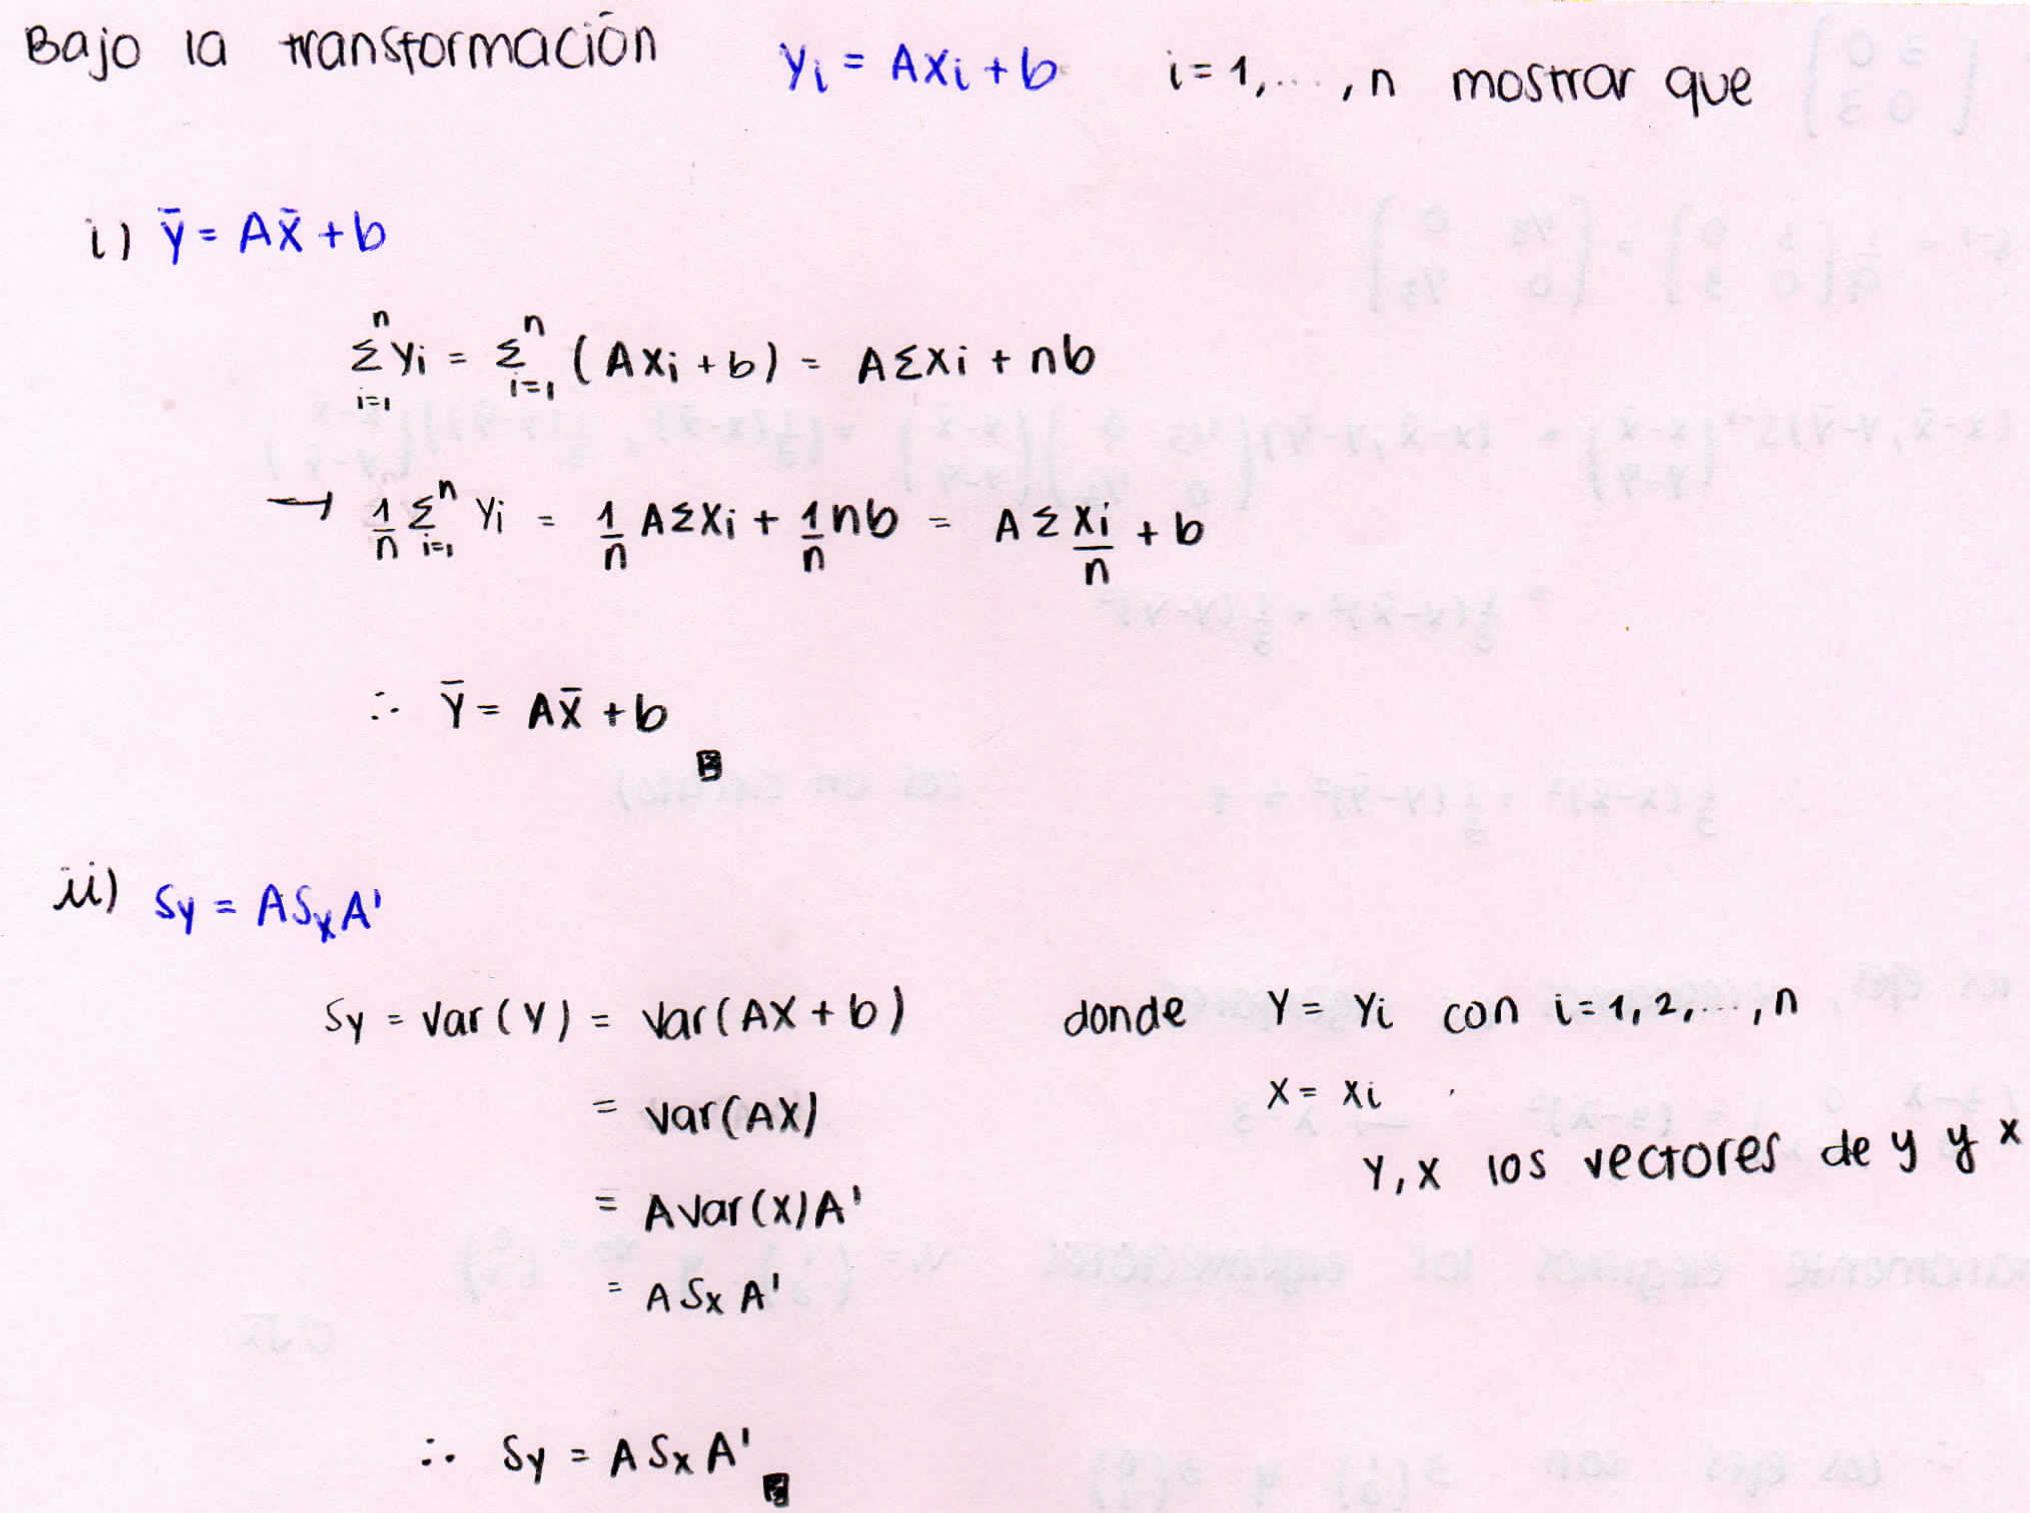 Bajo la transformación yi = Axi + b i = 1, ..., n mostrar que
i) ȳ = Ax̄ + b
n Σ i=1 yi = n Σ i=1 (Axi + b) = AΣxi + nb
→ 1/n n Σ i=1 Yi = 1/n AΣXi + 1/n nb = A Σ Xi/n + b
∴ Ȳ = AX̄ + b
ii) Sy = ASxA'
Sy = Var(Y) = Var(AX + b) donde Y = Yi con i = 1, 2, ..., n
= Var(AX) X = Xi
Y, X los vectores de y y x
= AVar(X)A'
= ASxA'
∴ Sy = ASxA'